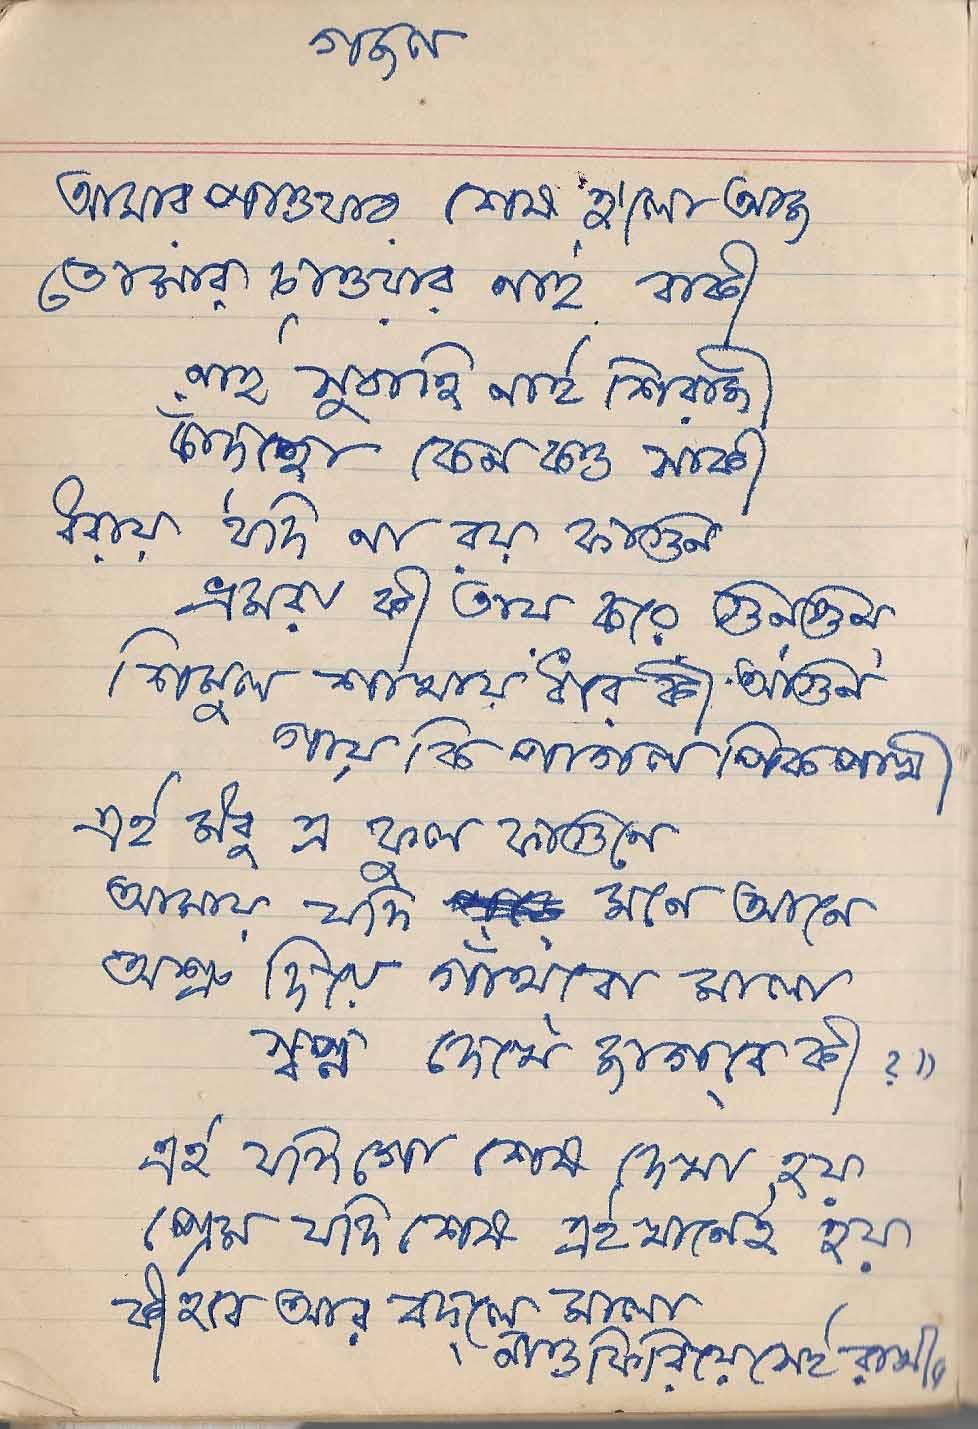 গজল
আমার পাওয়ার শেষ হ'লো আজ
তোমার চাওয়ার নাই বাকী
নাই সুরাহি নাই শিরাজী
চাঁদ কেন কও সাকী
ধরায় যদি না রয় ফাগুন
ভ্রমরা কী তায় করে গুনগুন
শিমুল শাখায় ধরে কী আগুন
গায় কি পাগল পিকপাখী
এই মধু এ ফুল ফাগুনে
আমায় যদি মনে আনে
অশ্রু দিয়ে গাঁথবো মালা
স্বপ্ন দেখে জাগবে কী ?"
এই যদি গো শেষ দেখা হয়
প্রেম যদি শেষ এইখানেই হয়
কী হবে আর বদলে মালা
নাও ফিরিয়ে সেই রাখী॥